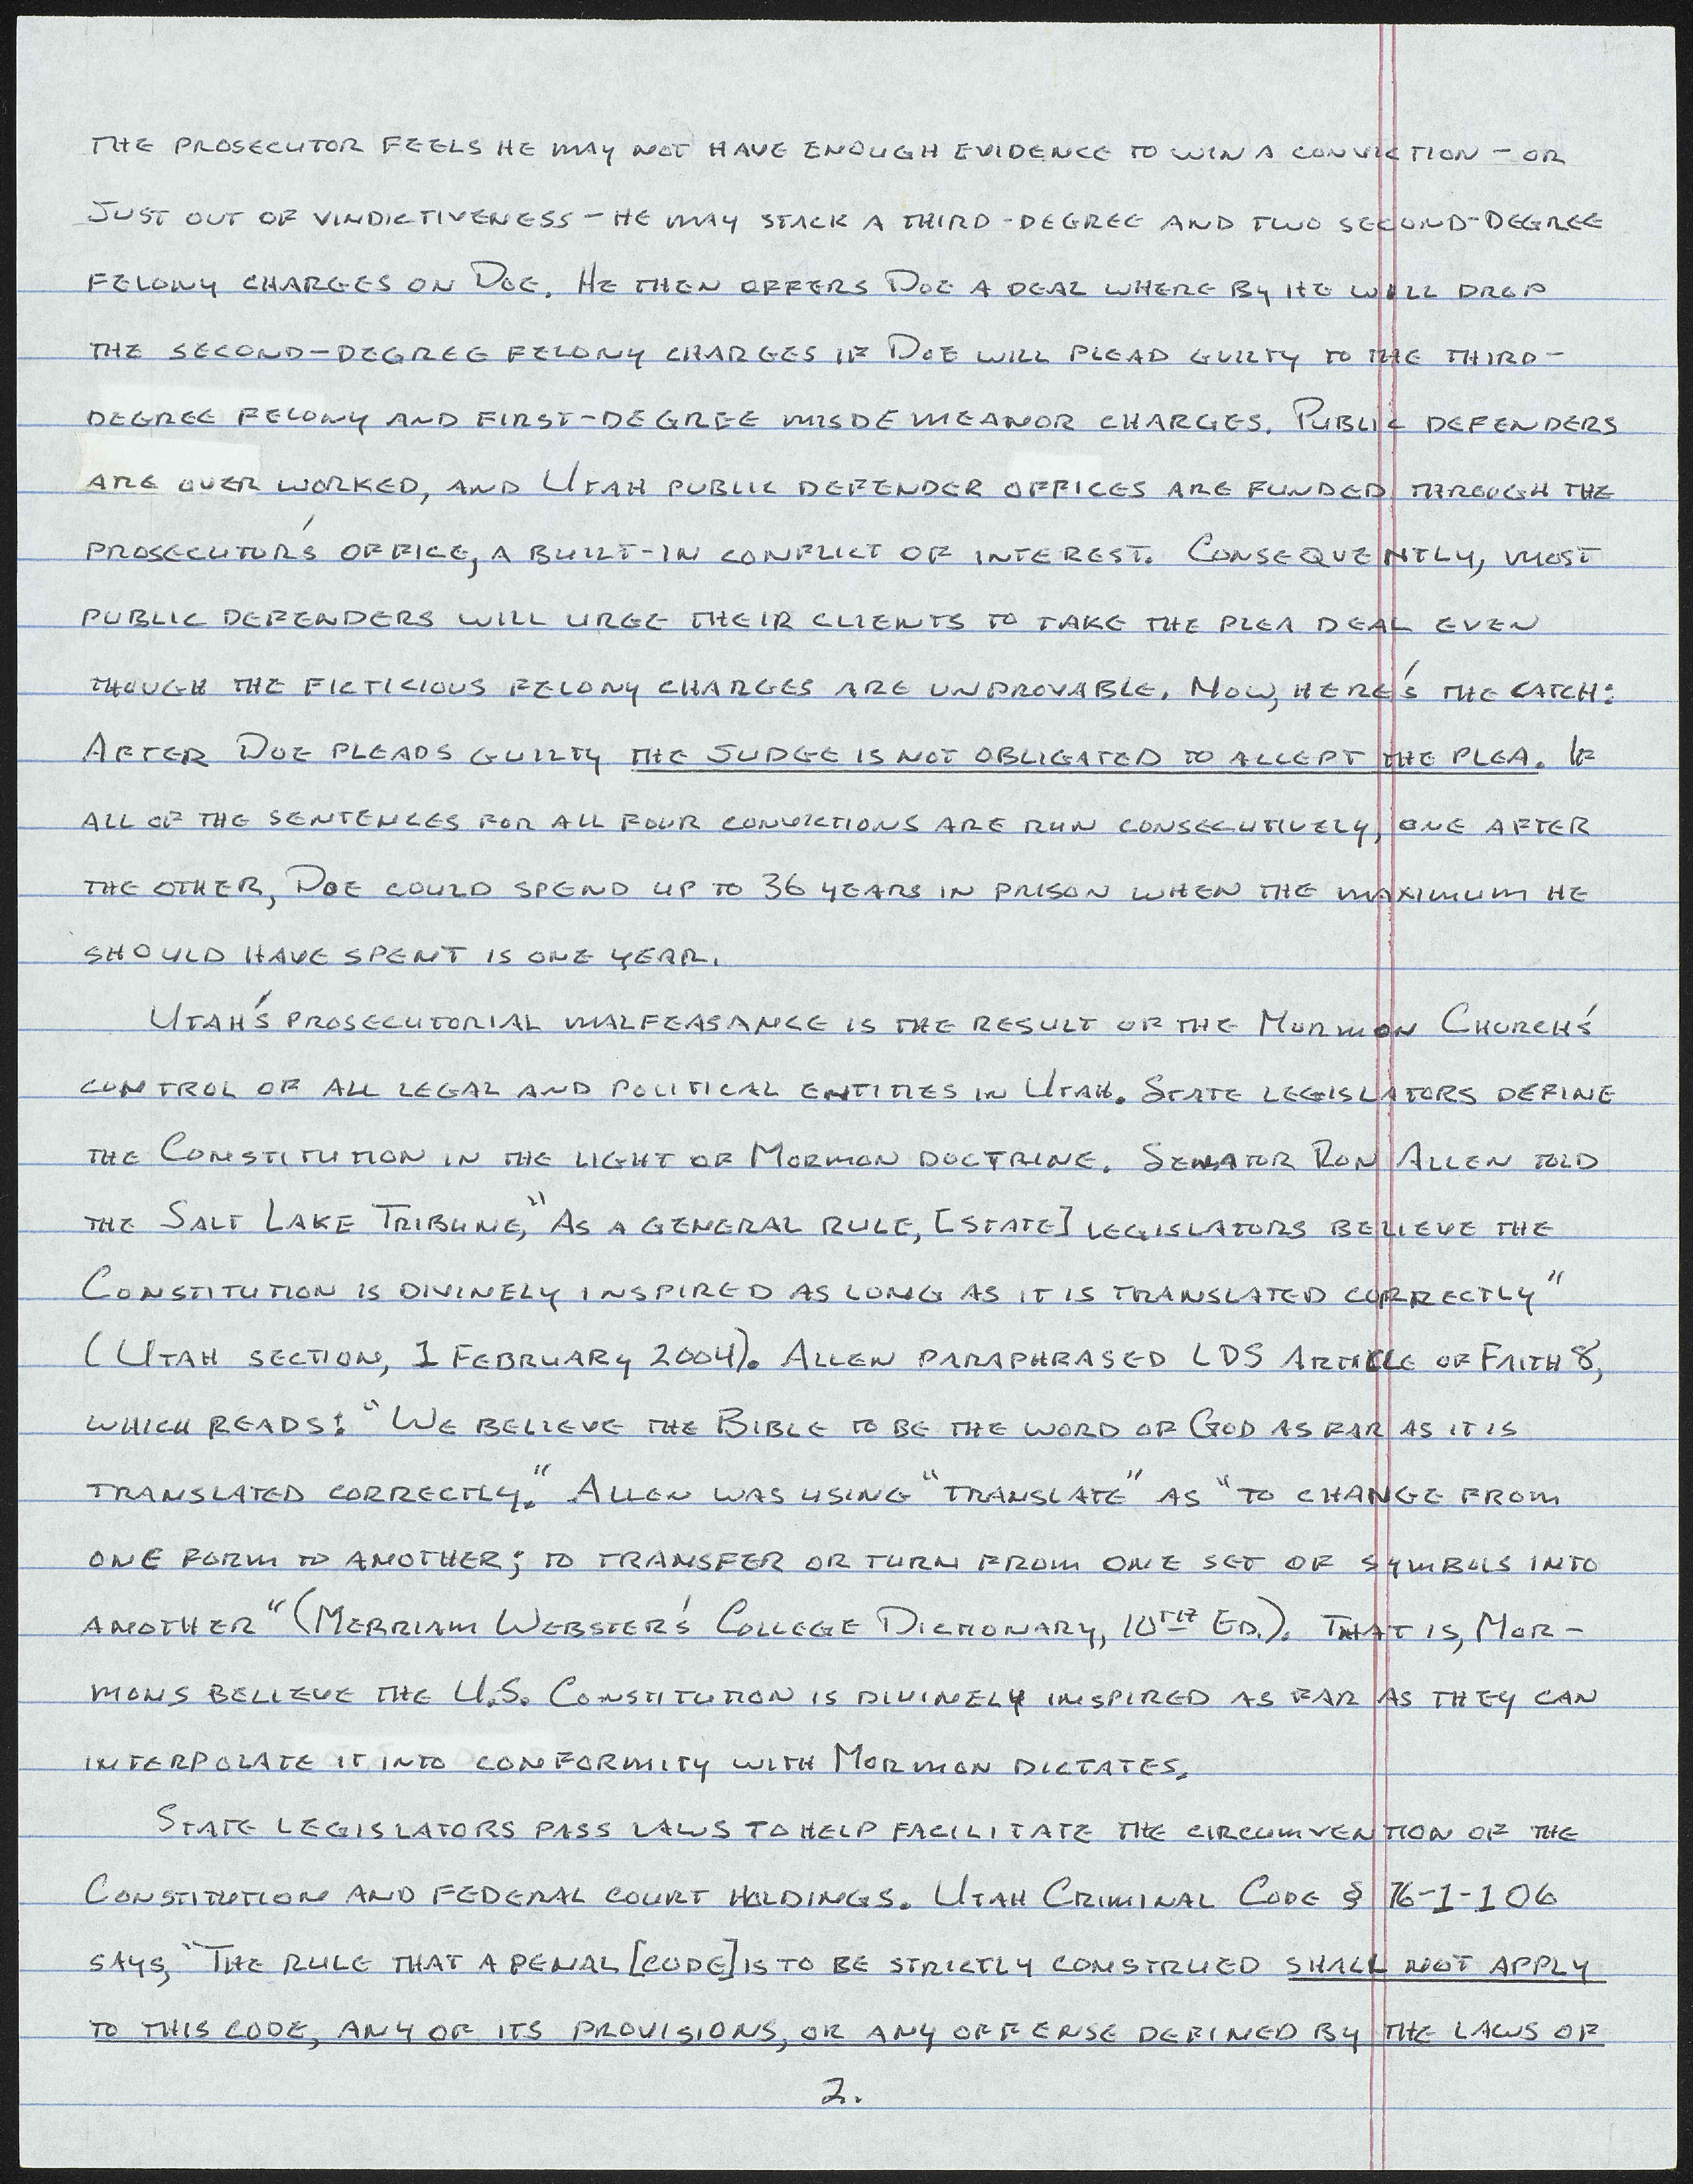 THE PROSECUTOR FEELS HE MAY NOT HAVE ENOUGH EVIDENCE TO WIN A CONVICTION - OR
JUST OUT OF VINDICTIVENESS - HE MAY STACK A THIRD-DEGREE AND TWO SECOND-DEGREE
FELONY CHARGES ON DOE. HE THEN OFFERS DOE A DEAL WHERE BY HE WILL DROP
THE SECOND-DEGREE FELONY CHARGES IF DOE WILL PLEAD GUILTY TO THE THIRD-
DEGREE FELONY AND FIRST-DEGREE MISDEMEANOR CHARGES. PUBLIC DEFENDERS
ARE OVER WORKED, AND UTAH PUBLIC DEFENDER OFFICES ARE FUNDED THROUGH THE
PROSECUTOR'S OFFICE, A BUILT-IN CONFLICT OF INTEREST. CONSEQUENTLY, MOST
PUBLIC DEFENDERS WILL URGE THEIR CLIENTS TO TAKE THE PLEA DEAL EVEN
THOUGH THE FICTICIOUS FELONY CHARGES ARE UNPROVABLE. NOW, HERE'S THE CATCH:
AFTER DOE PLEADS GUILTY THE JUDGE IS NOT OBLIGATED TO ACCEPT THE PLEA. IF
ALL OF THE SENTENCES FOR ALL FOUR CONVICTIONS ARE RUN CONSECUTIVELY, ONE AFTER
THE OTHER, DOE COULD SPEND UP TO 36 YEARS IN PRISON WHEN THE MAXIMUM HE
SHOULD HAVE SPENT IS ONE YEAR.
UTAH'S PROSECUTORIAL MALFEASANCE IS THE RESULT OF THE MORMON CHURCH'S
CONTROL OF ALL LEGAL AND POLITICAL ENTITIES IN UTAH. STATE LEGISLATORS DEFINE
THE CONSTITUTION IN THE LIGHT OF MORMON DOCTRINE. SENATOR RON ALLEN TOLD
THE SALT LAKE TRIBUNE, "AS A GENERAL RULE, [STATE] LEGISLATORS BELIEVE THE
CONSTITUTION IS DIVINELY INSPIRED AS LONG AS IT IS TRANSLATED CORRECTLY"
(UTAH SECTION, 1 FEBRUARY 2004). ALLEN PARAPHRASED LDS ARTICLE OF FAITH 8,
WHICH READS: "WE BELIEVE THE BIBLE TO BE THE WORD OF GOD AS FAR AS IT IS
TRANSLATED CORRECTLY." ALLEN WAS USING "TRANSLATE" AS "TO CHANGE FROM
ONE FORM TO ANOTHER; TO TRANSFER OR TURN FROM ONE SET OF SYMBOLS INTO
ANOTHER" (MERRIAM WEBSTER'S COLLEGE DICTIONARY, 10TH ED.). THAT IS, MOR-
MONS BELIEVE THE U.S. CONSTITUTION IS DIVINELY INSPIRED AS FAR AS THEY CAN
INTERPOLATE IT INTO CONFORMITY WITH MORMON DICTATES.
STATE LEGISLATORS PASS LAWS TO HELP FACILITATE THE CIRCUMVENTION OF THE
CONSTITUTION AND FEDERAL COURT HOLDINGS. UTAH CRIMINAL CODE § 76-1-106
SAYS, "THE RULE THAT A PENAL [CODE] IS TO BE STRICTLY CONSTRUED SHALL NOT APPLY
TO THIS CODE, ANY OF ITS PROVISIONS, OR ANY OFFENSE DEFINED BY THE LAWS OF
2.